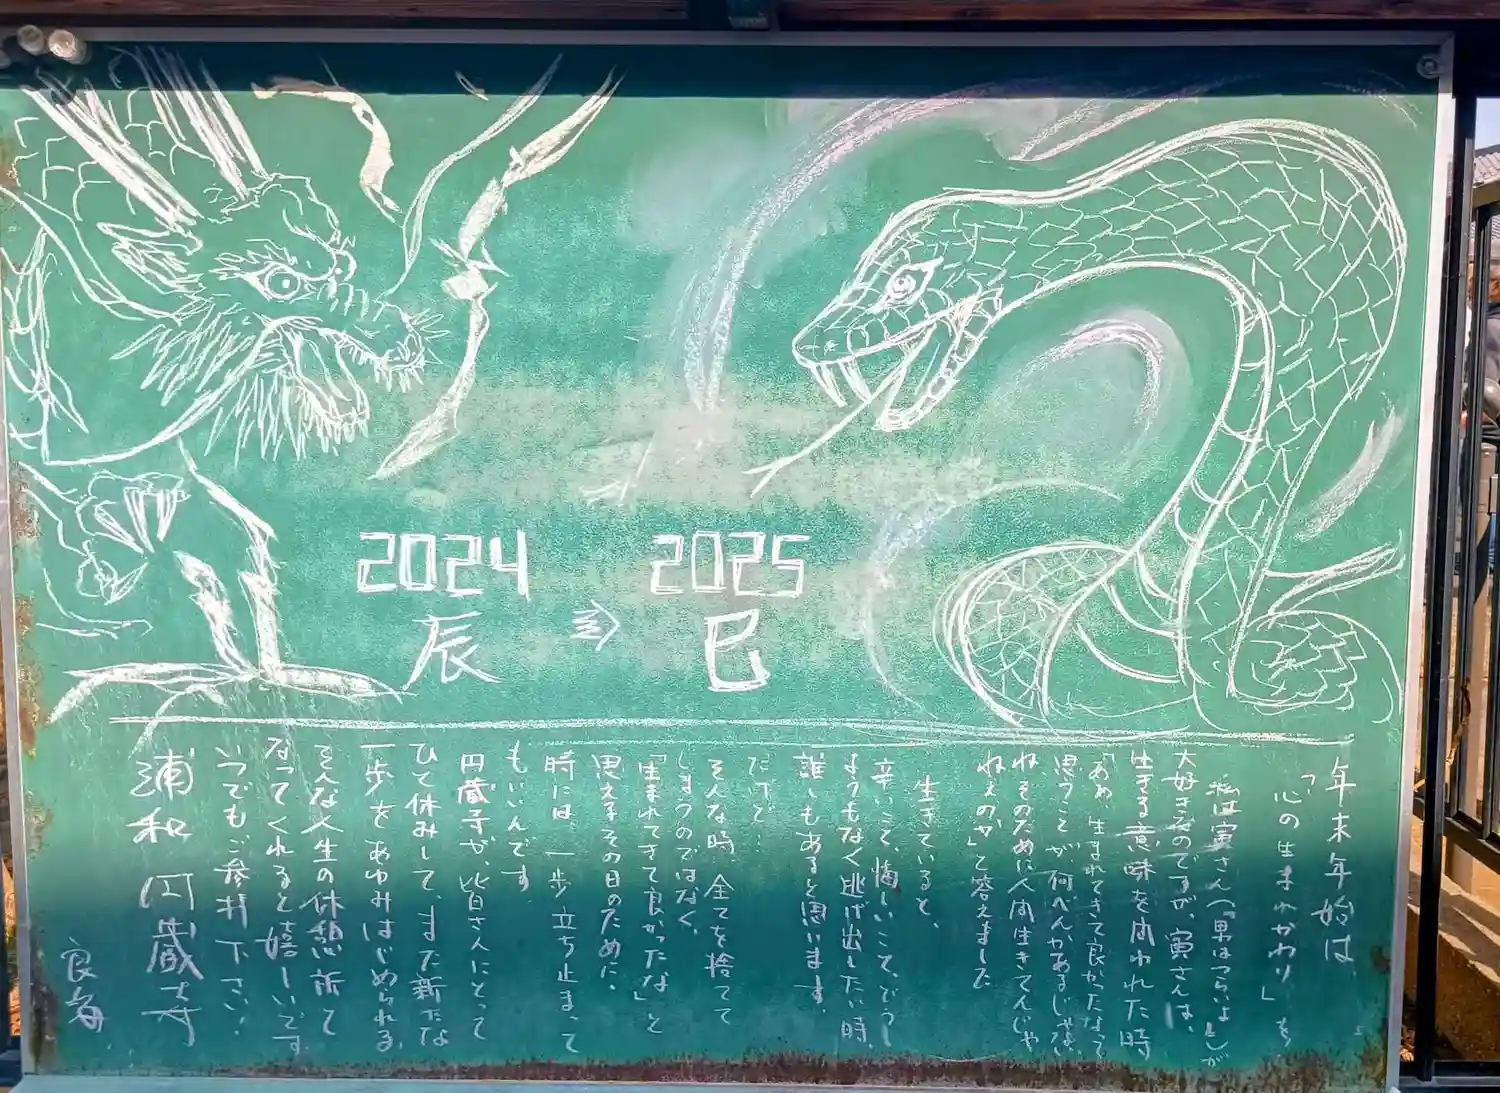 2024 ⇒ 2025
辰 巳
年末年始は
「心の生まれかわり」を
私は寅さん(『男はつらいよ』)が
大好きなのですが、寅さんは、
生きる意味を問われた時
「あぁ、生まれてきて良かったなって
思うことが何べんかあるじゃない
ね、そのために人間生きてんじゃ
ねぇのか」って答えました
生きていると、
辛いこと、悔しいこと、どうし
ようもなく逃げ出したい時、
誰しもあると思います。
だけど…
そんな時、全てを捨てて
しまうのではなく、
「生まれてきて良かったな」と
思えるその日のために、
時には、一歩立ち止まって
もいいんです
円蔵寺が、皆さんにとって
ひと休みして、また新たな
一歩をあゆみはじめられる
そんな人生の休憩所って
なってくれると嬉しいです
いつでもご参拝下さい。
浦和 円蔵寺